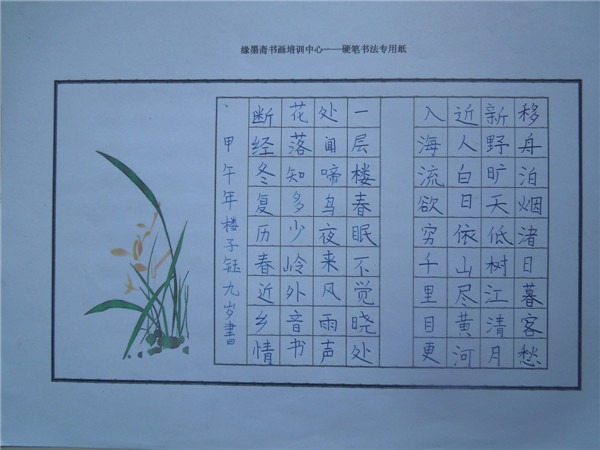 缘墨斋书画培训中心——硬笔书法专用纸
移舟泊烟渚日暮客愁
新野旷天低树江清月
近人白日依山尽黄河
入海流欲穷千里目更
一层楼春眠不觉晓处
处闻啼鸟夜来风雨声
花落知多少岭外音书
断经冬复历春近乡情
、甲午年楼子钰九岁書